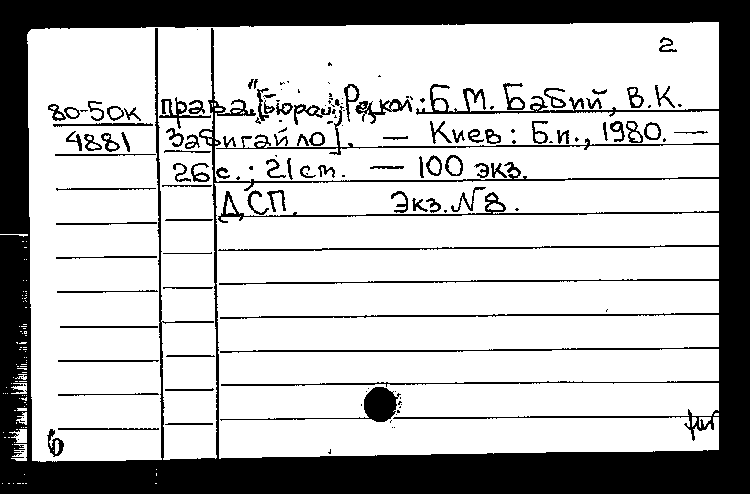 2
80-50к права." [Бюро]; Редкол.: Б.М. Бабий, В.К.
4881 Забигайло]. — Киев: Б.и., 1980. —
26 с.; 21 см. — 100 экз.
ДСП. Экз. N 8.